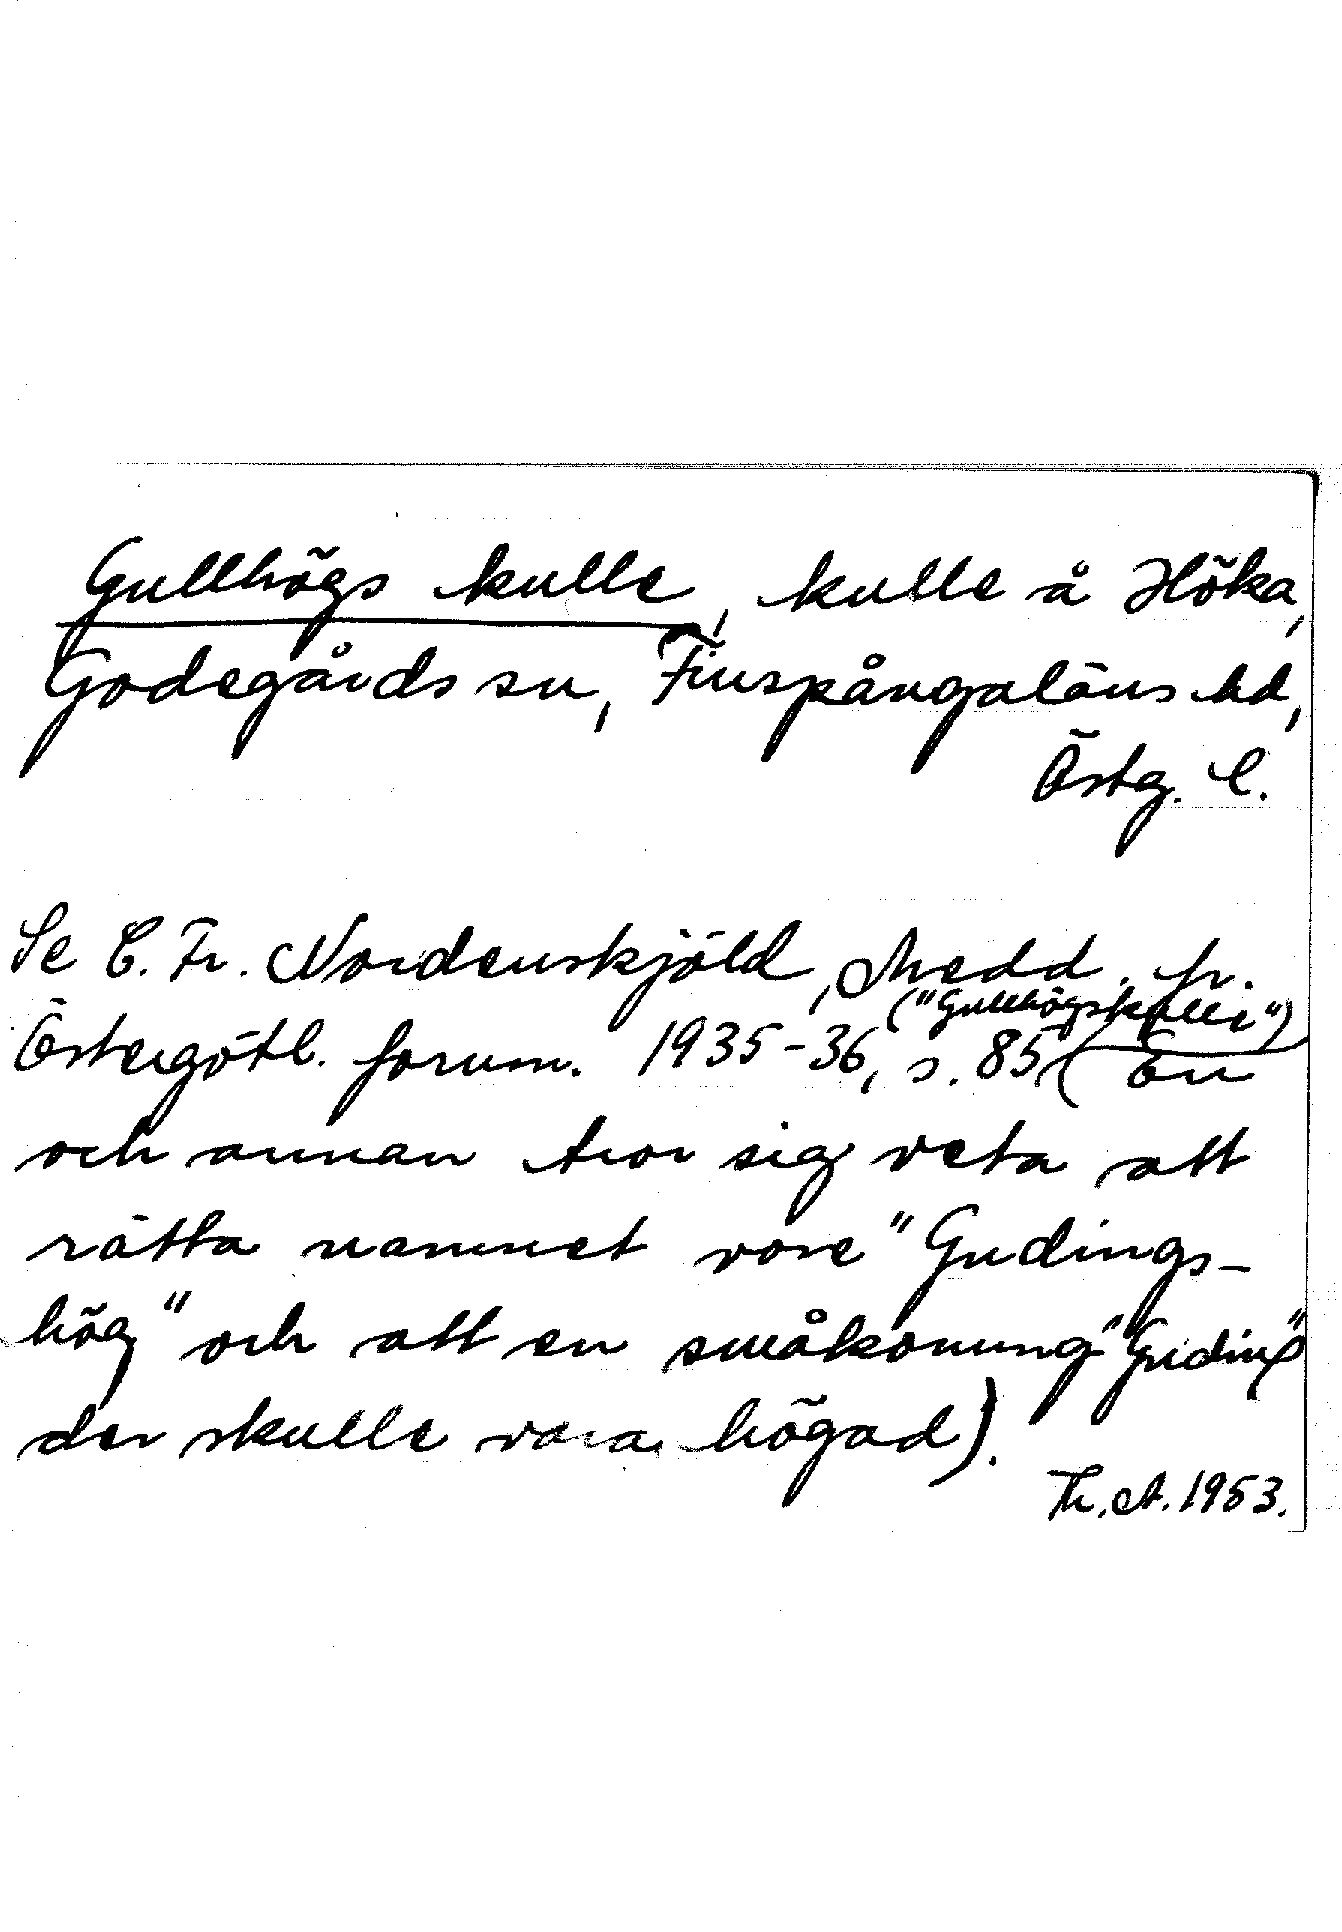 Gullhögs kulle, kulle å Höka,
Godegårds sn, Finspångaläns hd,
Östg. l.
Se C. Fr. Nordenskjöld, Medd. fr.
("Gullhögskulle")
Östergötl. fornm. 1935-36, s. 85 (En
och annan tror sig veta att
rätta namnet vore "Gudings-
hög" och att en småkonung "Guding"
der skulle vara högad).
Th. A. 1953.